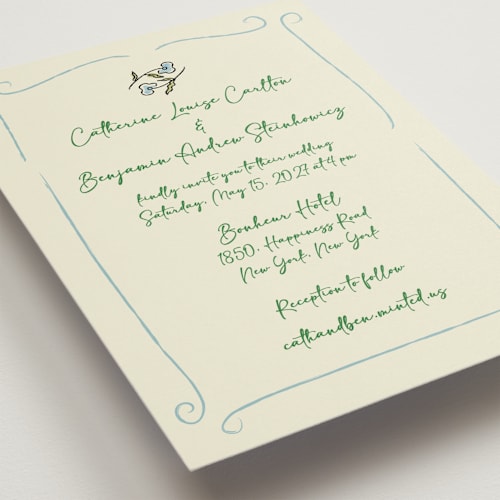 Catherine Louise Carlton
&
Benjamin Andrew Steinhowicz
kindly invite you to their wedding
Saturday, May 15, 2027 at 4 pm
Bonheur Hotel
1850, Happiness Road
New York, New York
Reception to follow
cathandben.minted.us